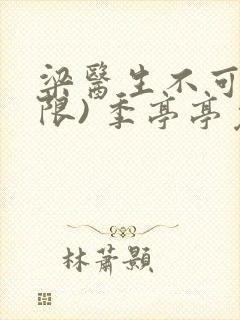 梁醫生不可
限）季亭亭
林蕭顥